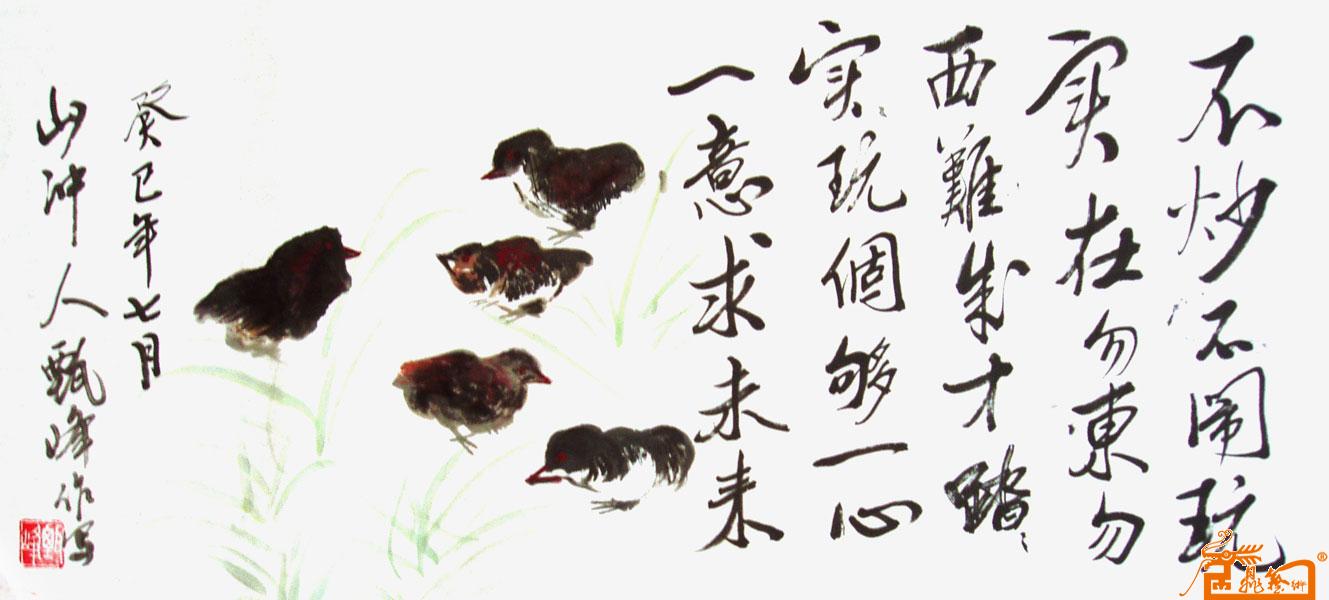 不炒不闹玩
实在勿東勿
西難成才踏
实玩個够一心
一意求未来
癸巳年七月
山冲人甄峰作写